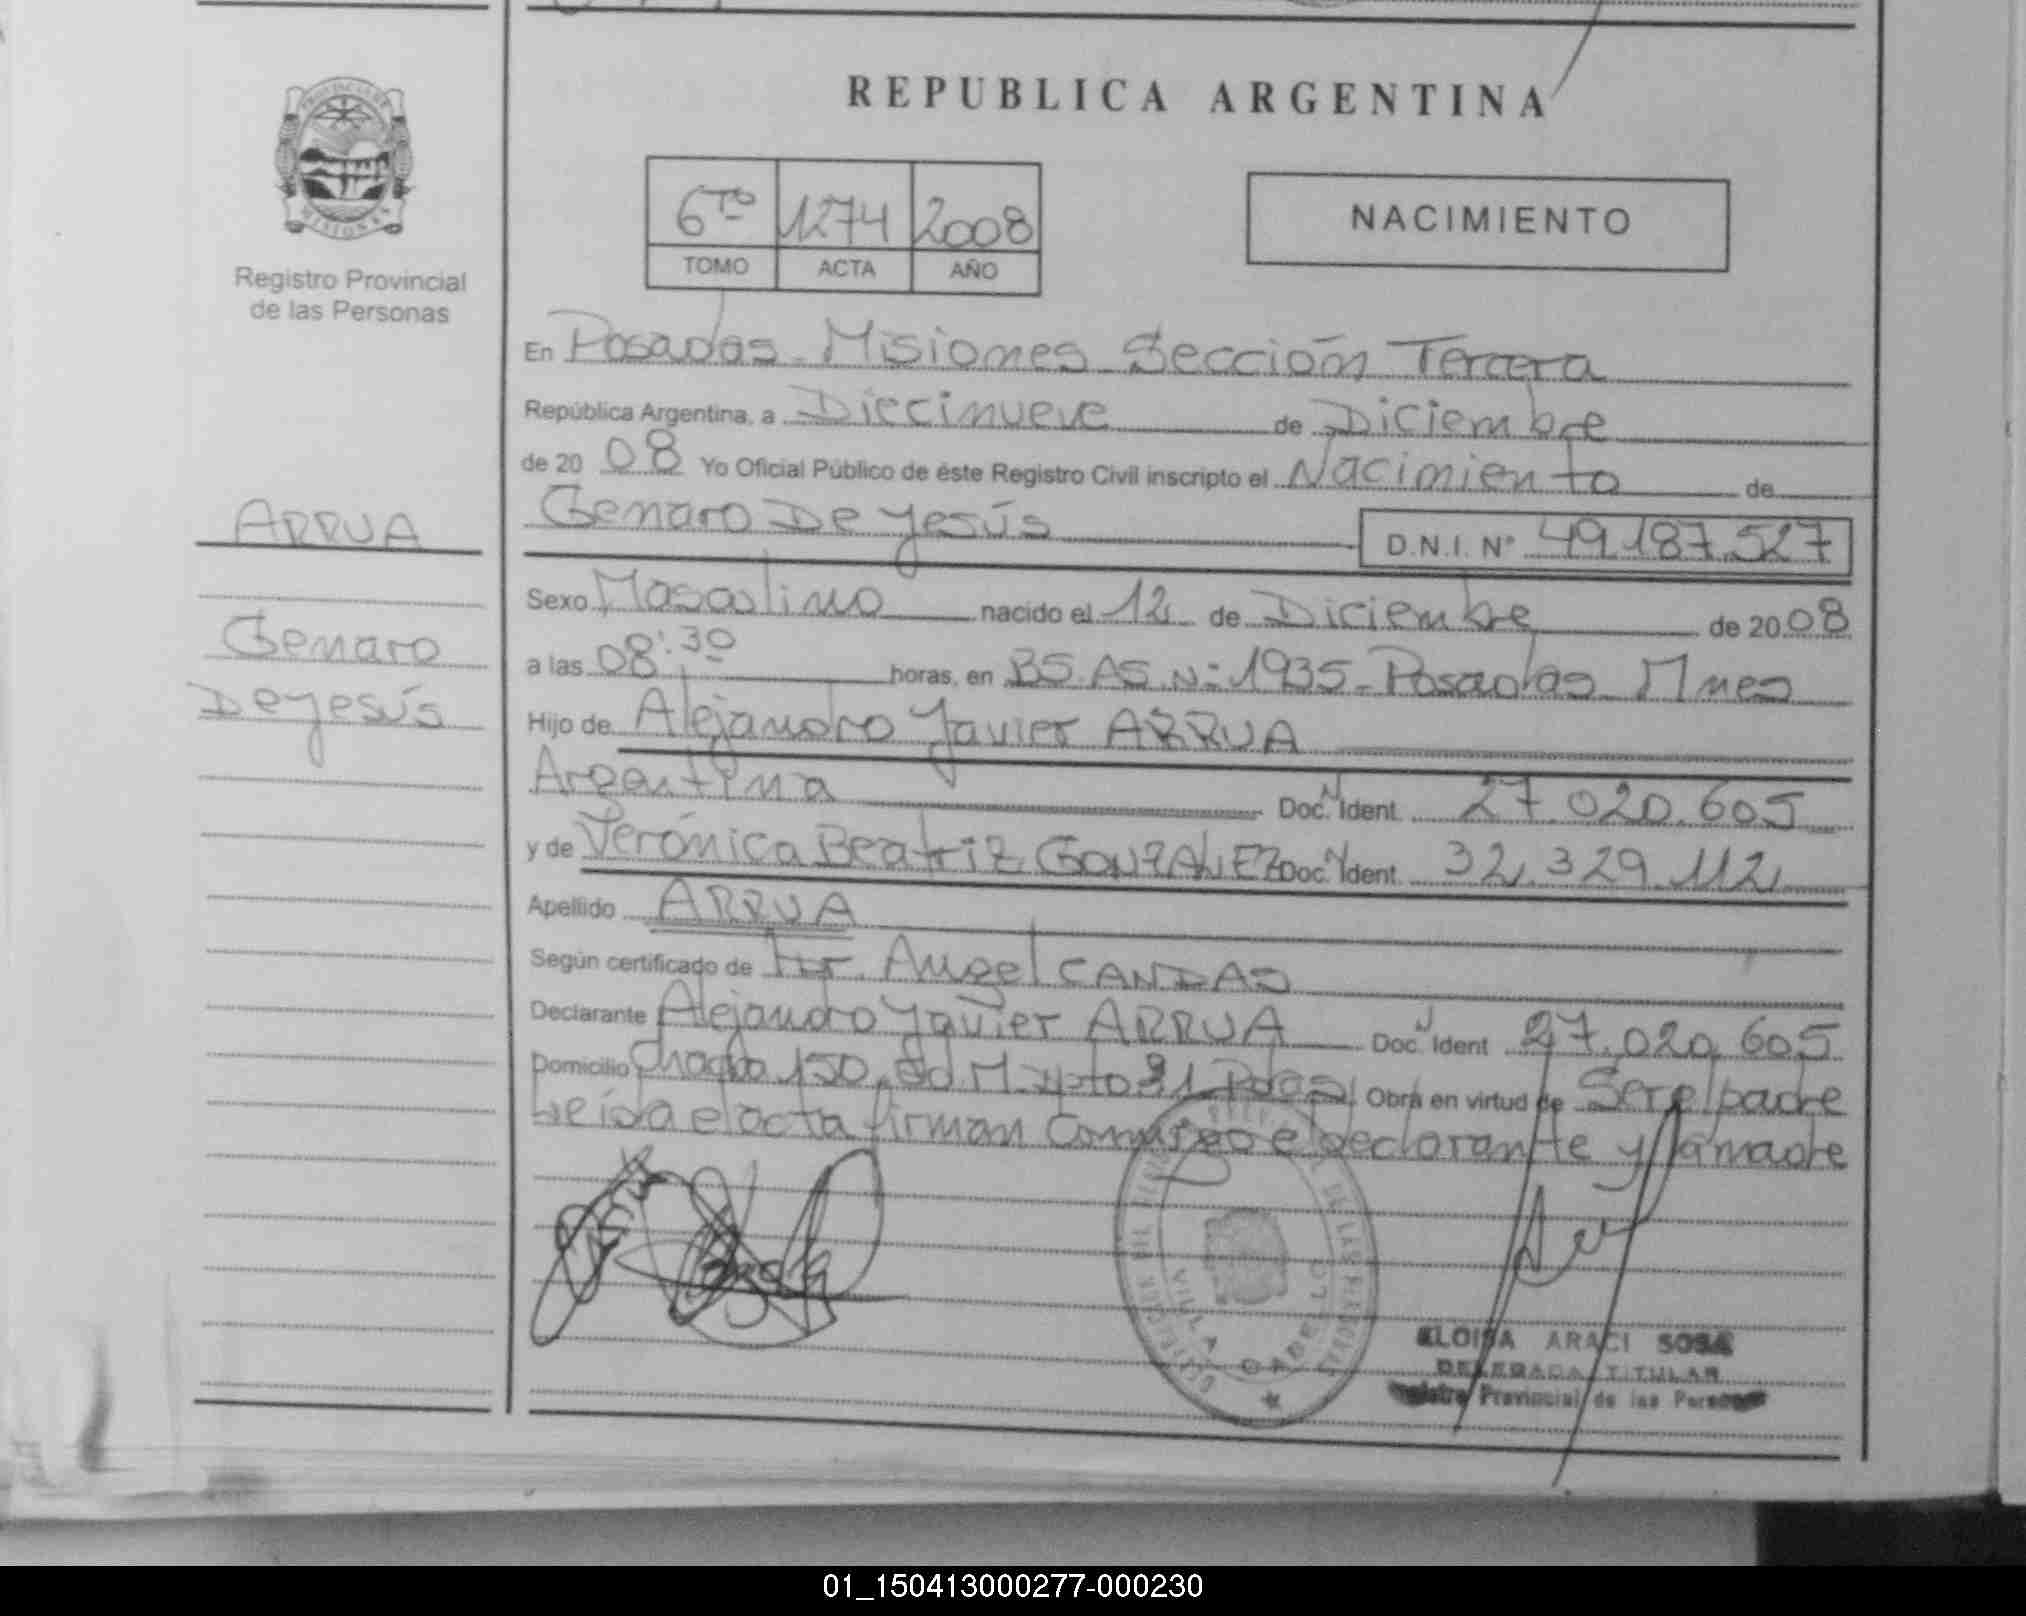 REPUBLICA ARGENTINA
PROVINCIA DE
MISIONES
Registro Provincial
de las Personas
6TO 1274 2008
TOMO ACTA AÑO
NACIMIENTO
En Posadas - Misiones - Sección Tercera
República Argentina, a Diecinueve de Diciembre
de 20 08 Yo Oficial Público de éste Registro Civil inscripto el Nacimiento de
ARRUA
Genaro De Jesús D.N.I. Nº 49.187.527
Sexo Masculino nacido el 12 de Diciembre de 20 08
Genaro
De Jesús
a las 08:30 horas, en BS.AS. Nº 1935 - Posadas - Mnes
Hijo de Alejandro Javier ARRUA
Argentina Doc. N Ident. 27.020.605
y de Verónica Beatriz GONZALEZ Doc. N Ident. 32.329.112
Apellido ARRUA
Según certificado de Angel CANDAS
Declarante Alejandro Javier ARRUA Doc. N Ident 27.020.605
Domicilio 150, Obra en virtud de Ser el padre
Leída el acta firman Conmigo el declarante y la madre
VILLA CABELLO
ELOISA ARACI SOSA
DELEGADA TITULAR
Provincial de las Personas
01_150413000277-000230